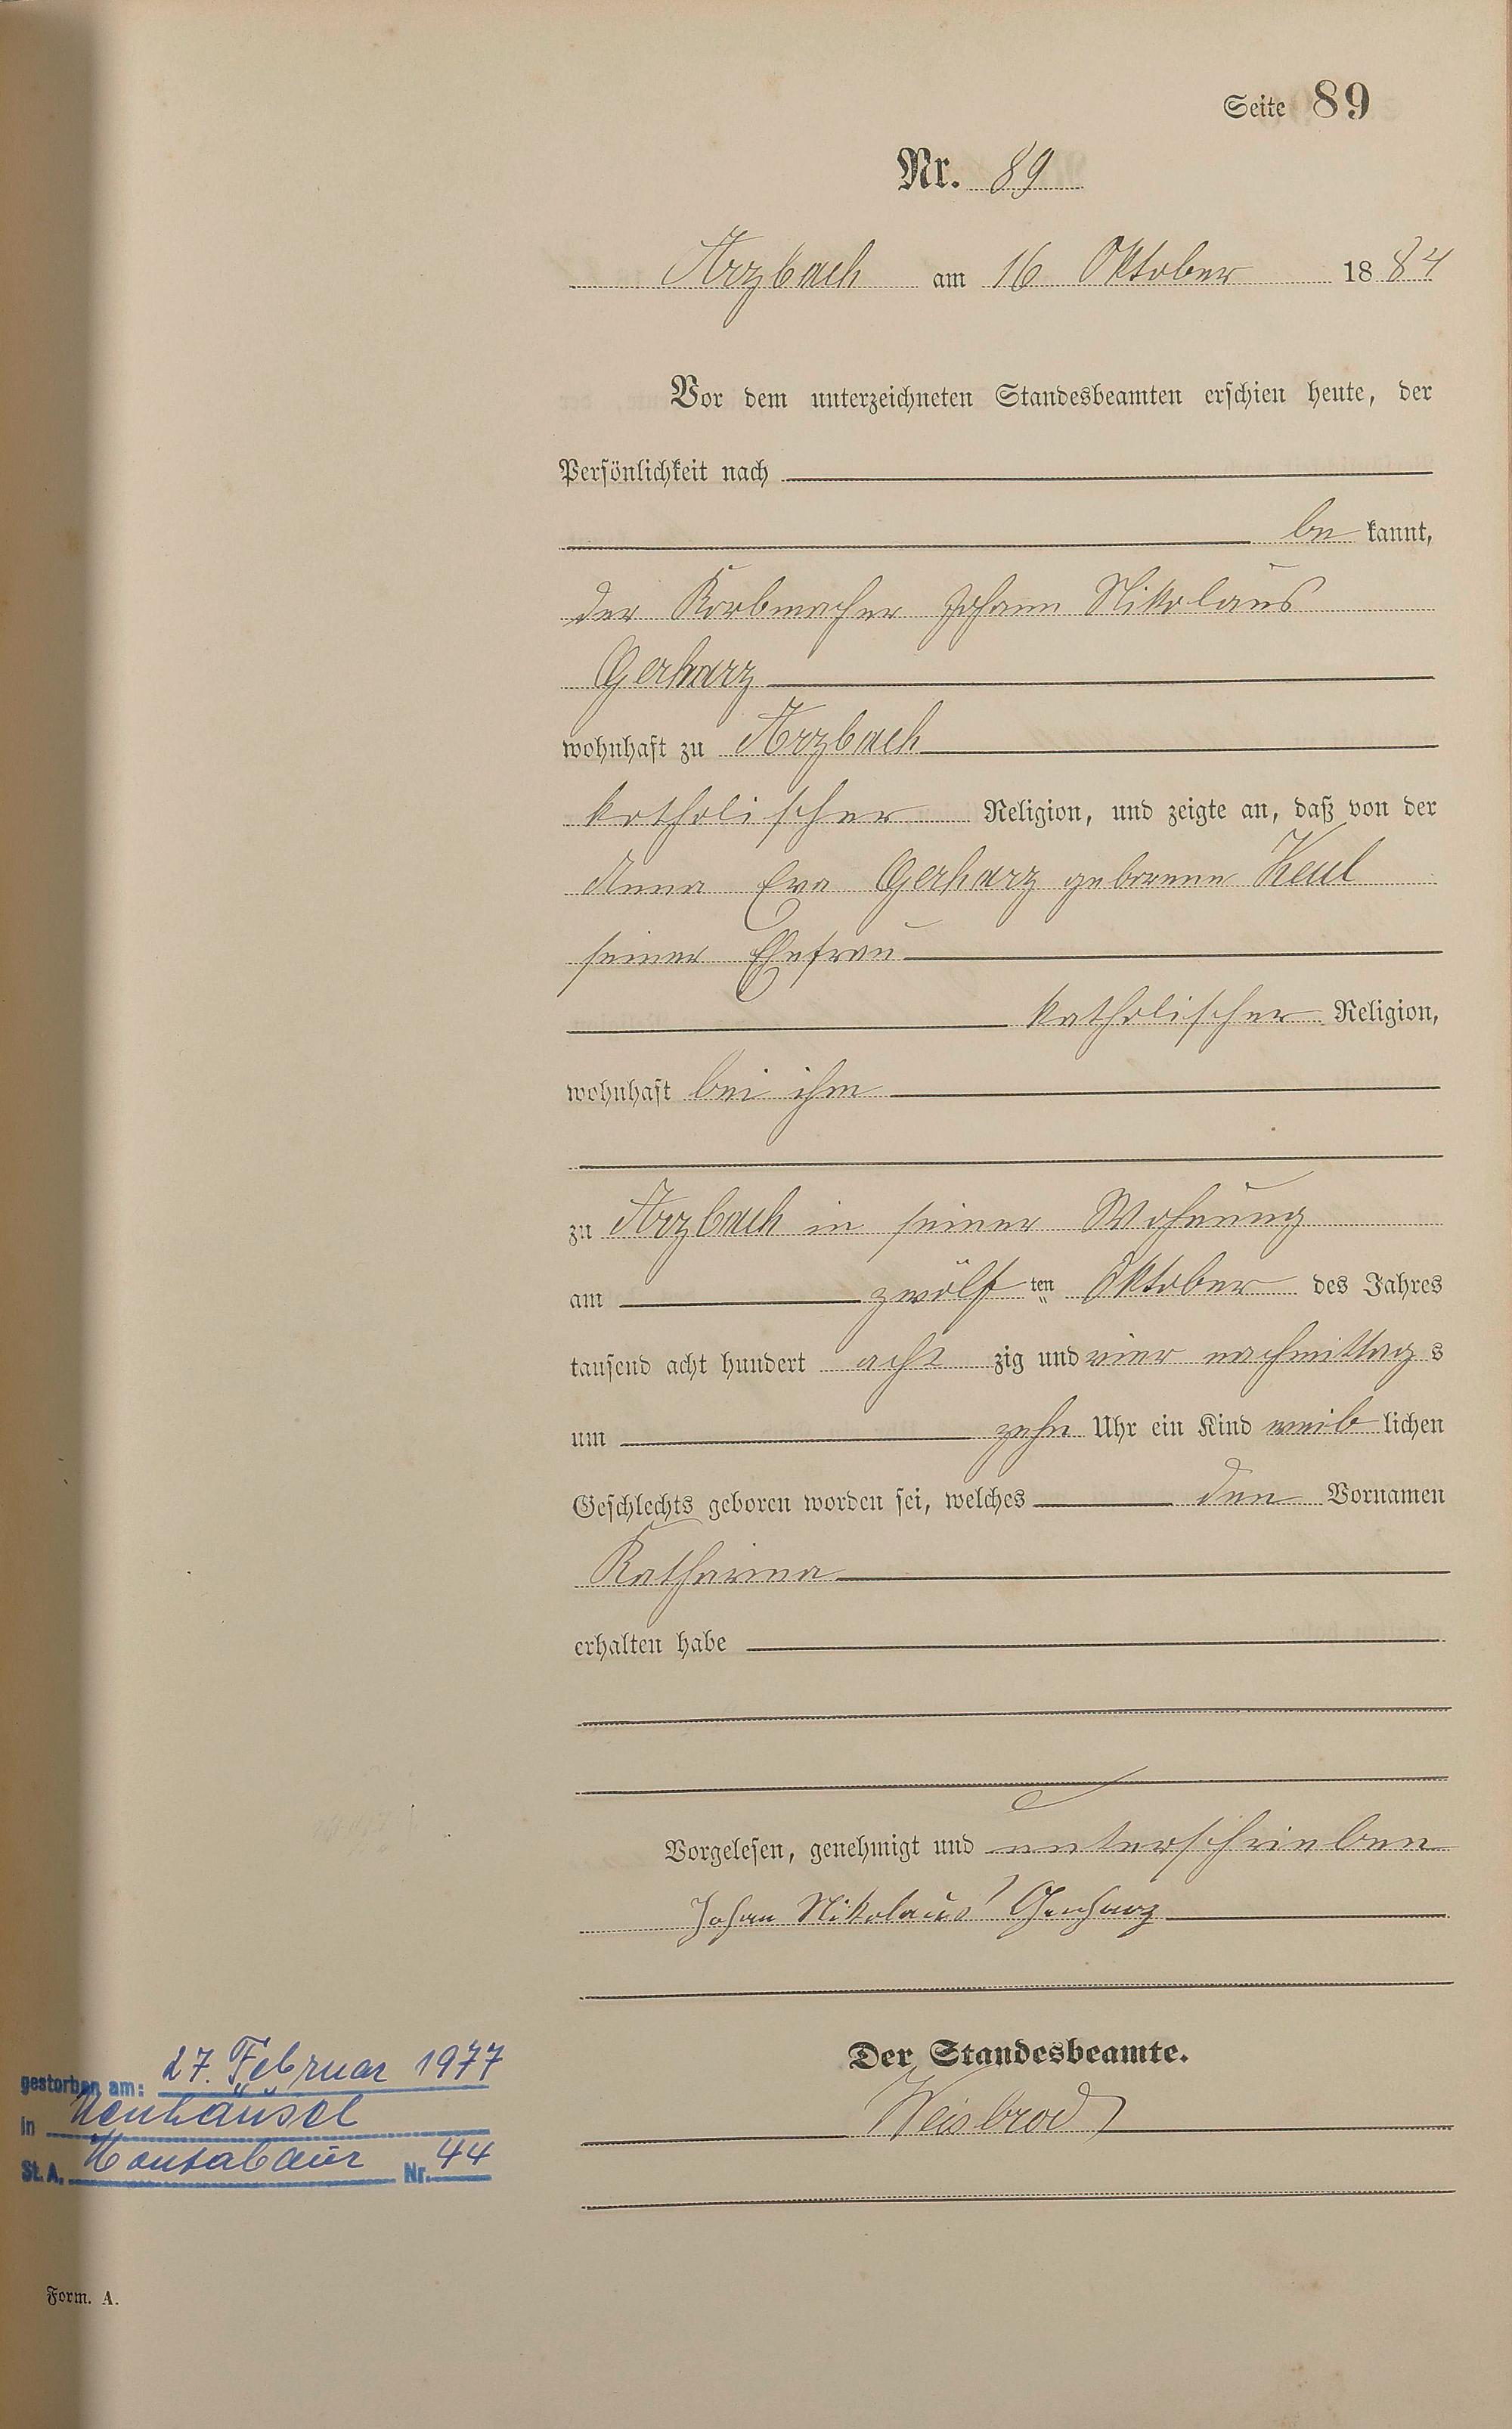 Seite 89
Nr. 89
Arzbach am 16 Oktober 1884
Vor dem unterzeichneten Standesbeamten erschien heute, der
Persönlichkeit nach
be kannt,
der Korbmacher Johann Nikolaus
Gerharz
wohnhaft zu Arzbach
katholischer Religion, und zeigte an, daß von der
Anna Eva Gerharz geborene Keul
seiner Ehefrau
katholischer Religion,
wohnhaft bei ihm
zu Arzbach in seiner Wohnung
am zwölf ten Oktober des Jahres
tausend acht hundert acht zig und vier nachmittag s
um zehn Uhr ein Kind weib lichen
Geschlechts geboren worden sei, welches den Vornamen
Katharina
erhalten habe
Vorgelesen, genehmigt und unterschrieben
Johan Nikolaus Gerharz
Der Standesbeamte.
Weisbrod
gestorben am: 27. Februar 1977
in Neuhäusel
St. A. Montabaur Nr. 44
Form. A.